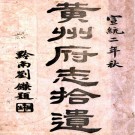 宣統二年秋
黃州府志拾遺
黔南劉㷆題